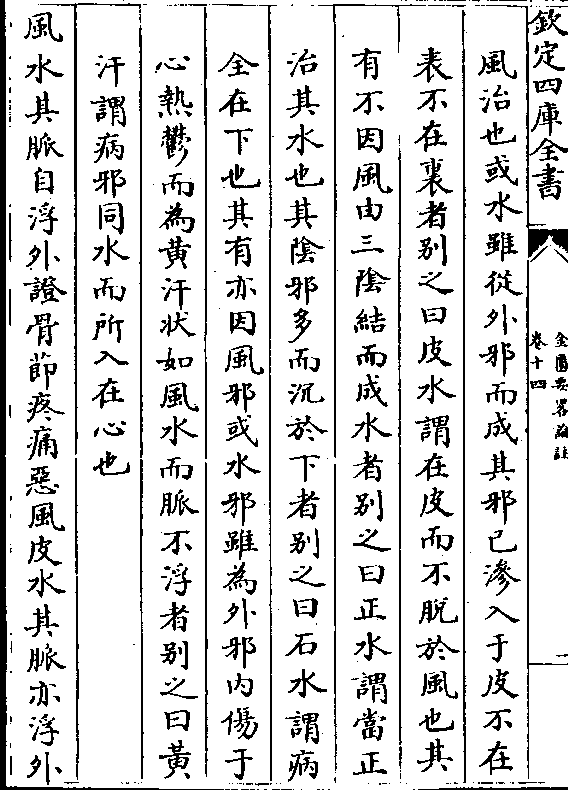 欽定四庫全書
金匱要畧論註
卷十四
一
風治也或水雖從外邪而成其邪已滲入于皮不在
表不在裏者别之曰皮水謂在皮而不脫於風也其
有不因風由三陰結而成水者别之曰正水謂當正
治其水也其陰邪多而沉於下者别之曰石水謂病
全在下也其有亦因風邪或水邪雖為外邪内傷于
心熱鬱而為黄汗状如風水而脈不浮者别之曰黄
汗謂病邪同水而所入在心也
風水其脈自浮外證骨莭疼痛惡風皮水其脈亦浮外